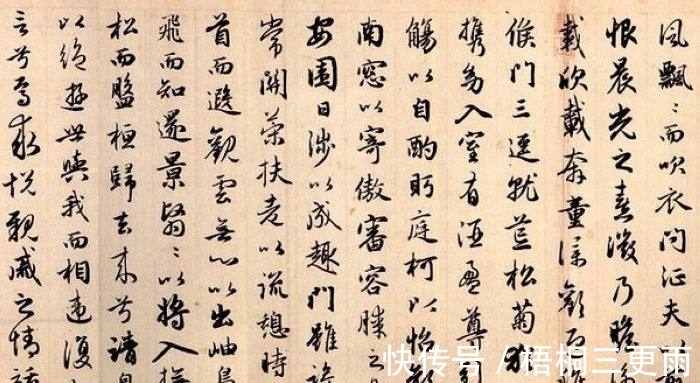 風飄〻而吹衣问征夫
恨晨光之熹微乃瞻
載欣載奔童僕歡迎
候門三逕就荒松菊猶
携幼入室有酒盈尊引
觴以自酌眄庭柯以怡顔
南窓以寄傲審容膝之
安園日涉以成趣門雖設
常關策扶老以流憩時
首而遐觀雲無心以出岫鳥
飛而知還景翳〻以將入撫
松而盤桓歸去来兮請息
以絶遊世與我而相違復
言兮焉求悦親戚之情話
快传号 / 梧桐三更雨